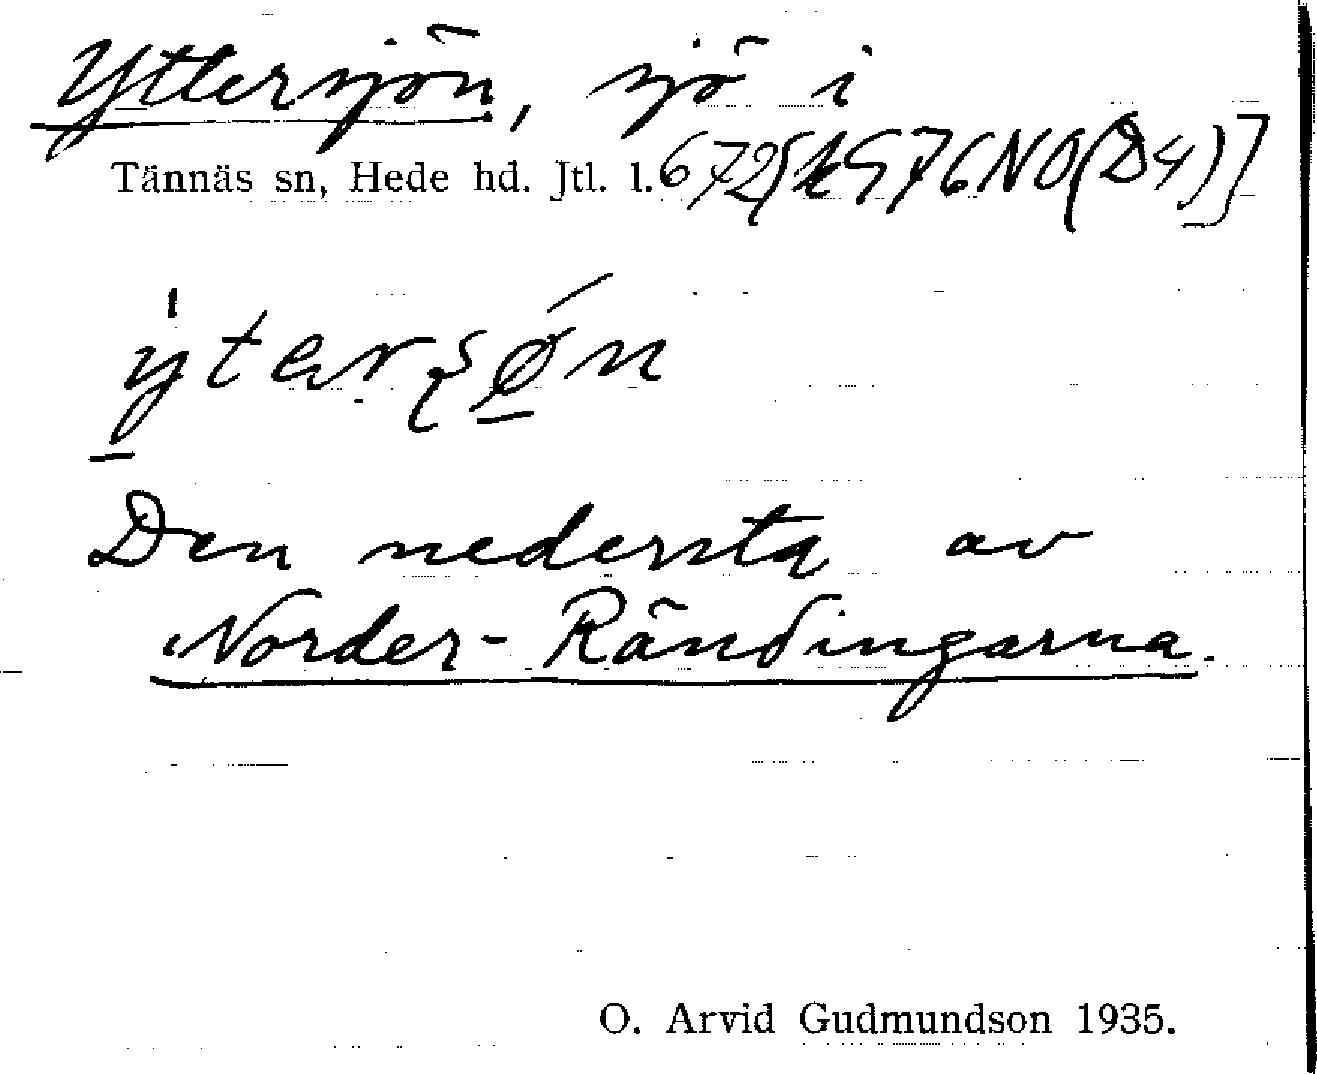 Yttersjön, sjö i
Tännäs sn, Hede hd. Jtl. l. 672[k976NO(D4)]
Den nedersta av
Norder-Rändingarna.
O. Arvid Gudmundson 1935.